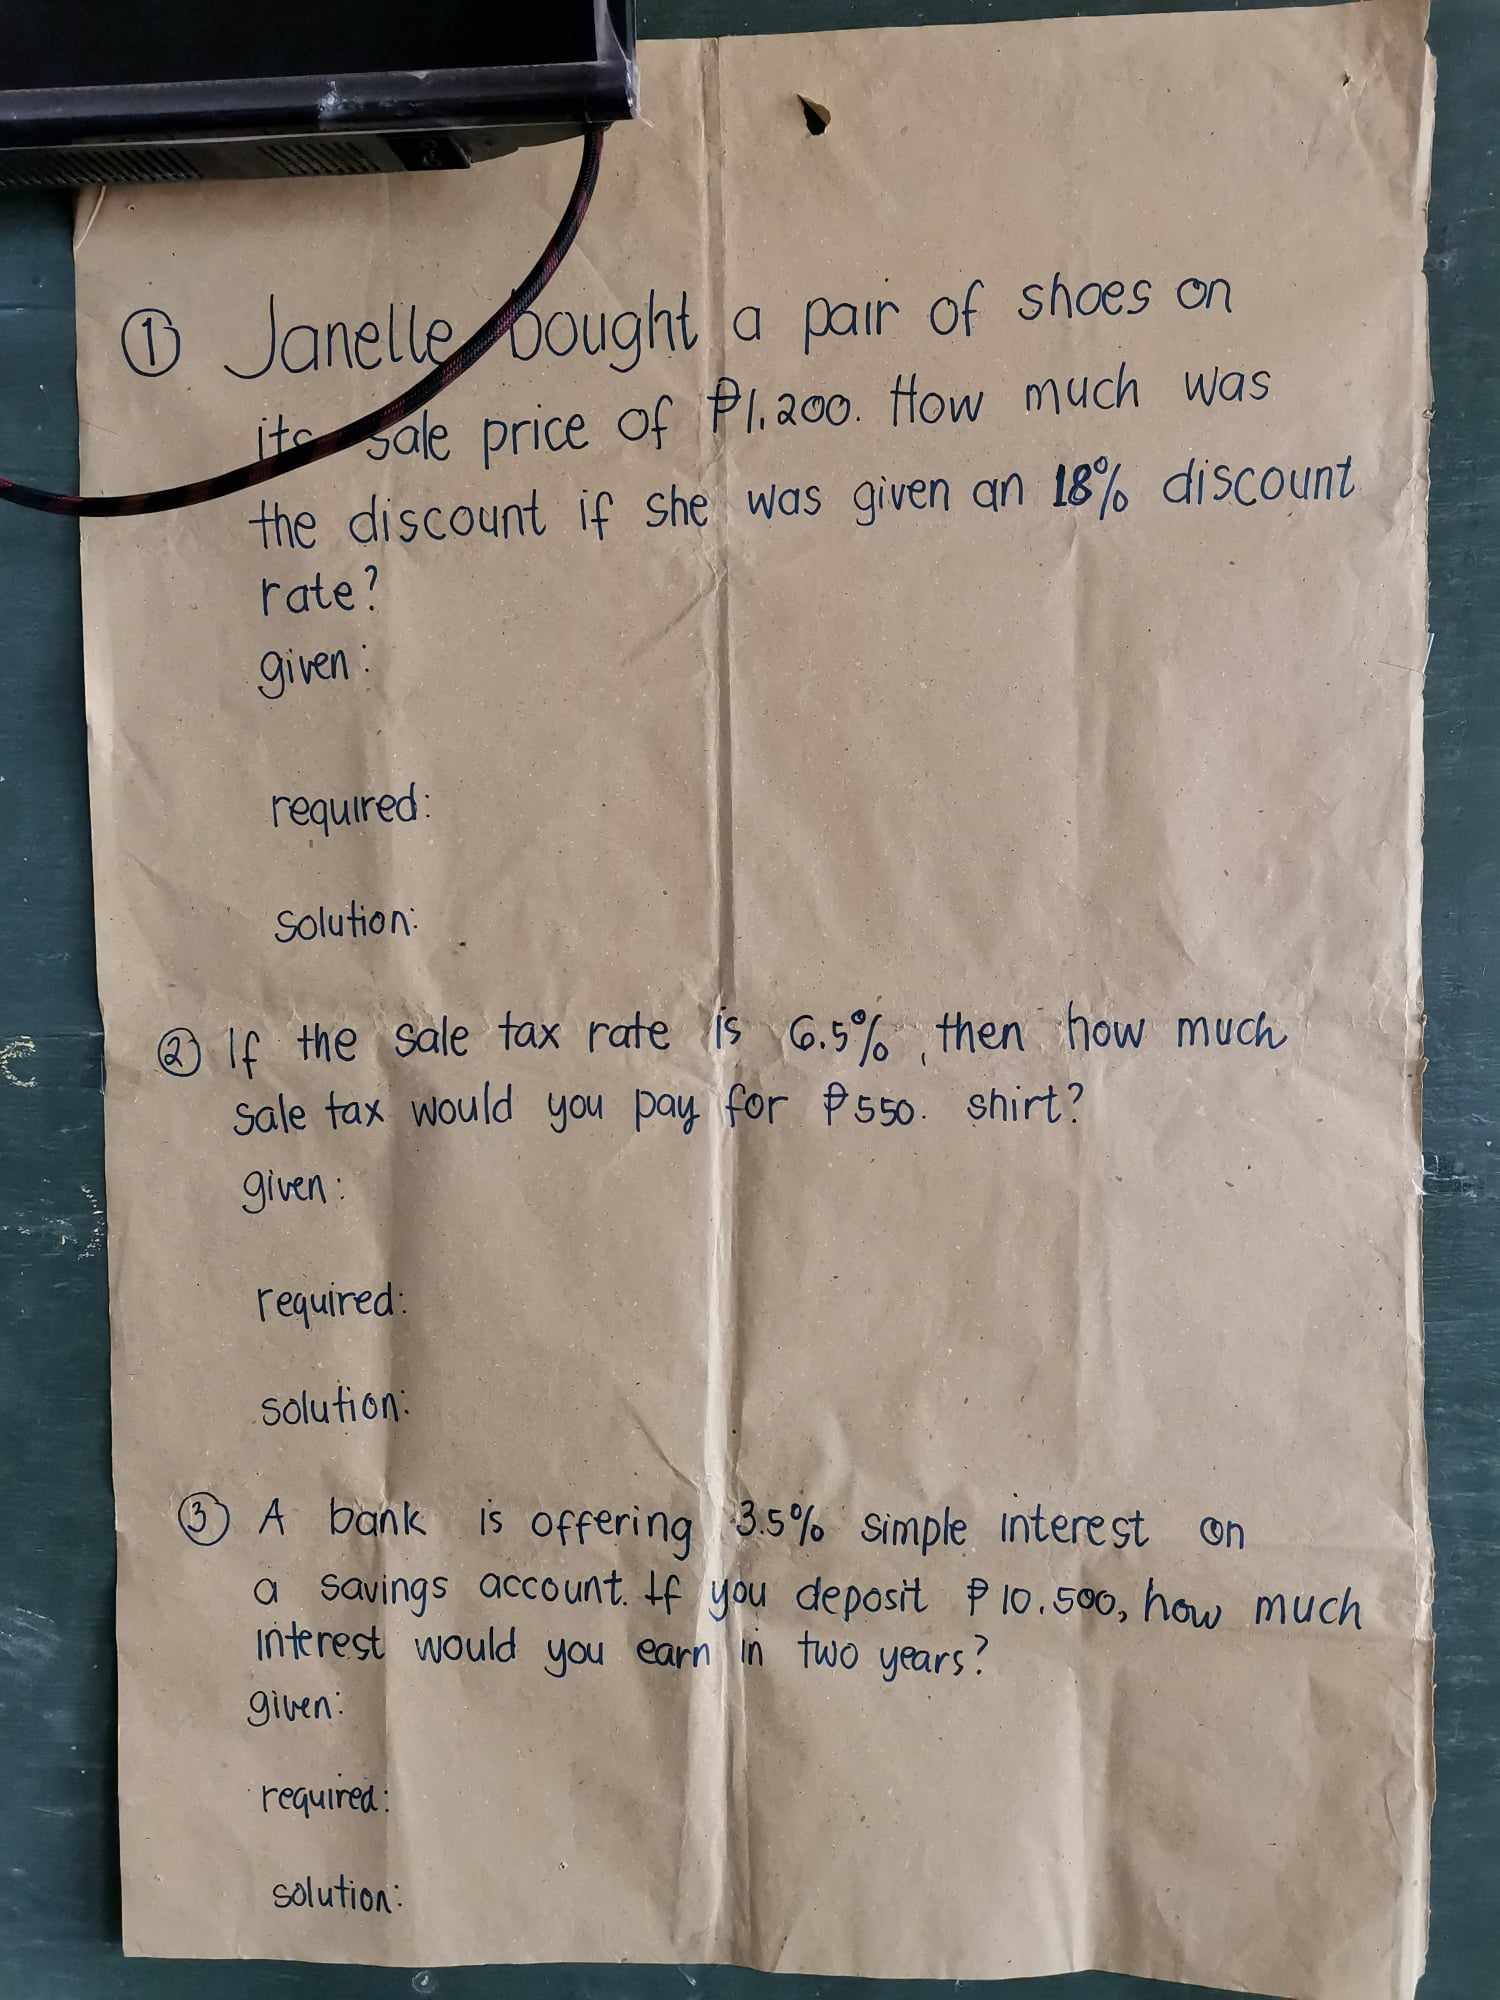 ① Janelle bought a pair of shoes on
its sale price of ₱1,200. How much was
the discount if she was given an 18% discount
rate?
given:
required:
solution:
② If the sale tax rate is 6.5%, then how much
sale tax would you pay for ₱550. shirt?
given:
required:
solution:
③ A bank is offering 3.5% simple interest on
a savings account. If you deposit ₱10,500, how much
interest would you earn in two years?
given:
required:
solution: